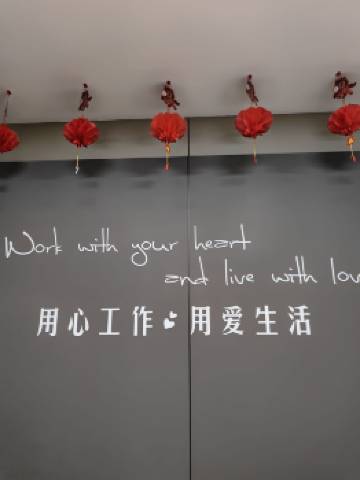 Work with your heart
and live with lov
用心工作 用爱生活